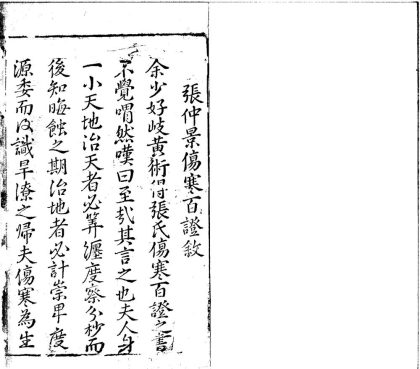 張仲景傷寒百證敘
余少好岐黃術得張氏傷寒百證之書
不覺喟然嘆曰至哉其言之也夫人身
一小天地治天者必筭躔度察分杪而
後知晦蝕之期治地者必計崇卑度
源委而後識旱潦之歸夫傷寒為生